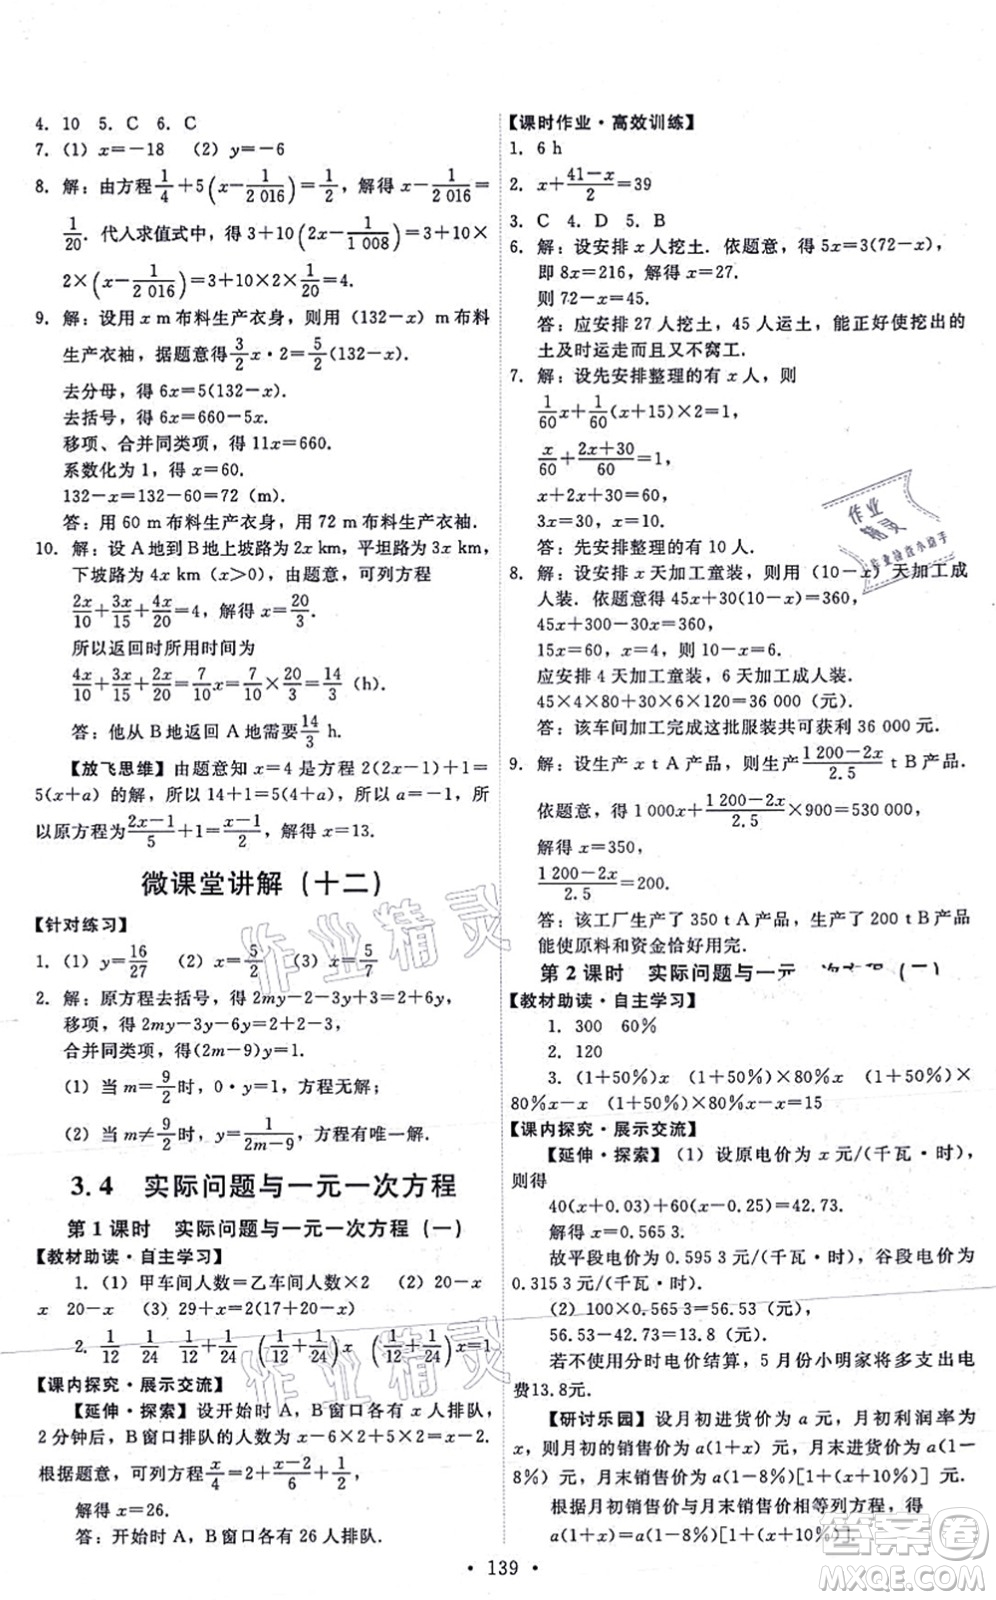 4. 10  5. C  6. C
7. (1) x=-18  (2) y=-6
8. 解：由方程1/4+5(x-1/2 016)=1/2，解得 x-1/2 016=
1/20. 代入求值式中，得 3+10(2x-1/1 008)=3+10×
2×(x-1/2 016)=3+10×2×1/20=4.
9. 解：设用 x m 布料生产衣身，则用（132-x）m 布料
生产衣袖，据题意得3/2x·2=5/2(132-x).
去分母，得 6x=5(132-x).
去括号，得 6x=660-5x.
移项、合并同类项，得 11x=660.
系数化为 1，得 x=60.
132-x=132-60=72（m）.
答：用 60 m 布料生产衣身，用 72 m 布料生产衣袖.
10. 解：设 A 地到 B 地上坡路为 2x km，平坦路为 3x km，
下坡路为 4x km（x>0），由题意，可列方程
2x/10+3x/15+4x/20=4，解得 x=20/3.
所以返回时所用时间为
4x/10+3x/15+2x/20=7/10x=7/10×20/3=14/3（h）.
答：他从 B 地返回 A 地需要14/3 h.
【放飞思维】由题意知 x=4 是方程 2(2x-1)+1=
5(x+a) 的解，所以 14+1=5(4+a)，所以 a=-1，所
以原方程为(2x-1)/5+1=(x-1)/2，解得 x=13.
微课堂讲解（十二）
【针对练习】
1. (1) y=16/27  (2) x=5/2  (3) x=5/7
2. 解：原方程去括号，得 2my-3y=2+2+6y，
移项，得 2my-3y-6y=2+2-3，
合并同类项，得(2m-9)y=1.
(1) 当 m=9/2时，0·y=1，方程无解；
(2) 当 m≠9/2时，y=1/(2m-9)，方程有唯一解.
3.4 实际问题与一元一次方程
第 1 课时 实际问题与一元一次方程（一）
【教材助读·自主学习】
1. (1) 甲车间人数=乙车间人数×2  (2) 20-x
x  20-x  (3) 29+x=2(17+20-x)
2. 1/12  1/24  1/12+1/24  (1/12+1/24)x  (1/12+1/24)x=1
【课内探究·展示交流】
【延伸·探索】设开始时 A，B 窗口各有 x 人排队，
2 分钟后，B 窗口排队的人数为 x-6×2+5×2=x-2.
根据题意，可列方程x/4=2+(x-2)/6+1/2，
解得 x=26.
答：开始时 A，B 窗口各有 26 人排队.
【课时作业·高效训练】
1. 6 h
2. x+(41-x)/2=39
3. C  4. D  5. B
6. 解：设安排 x 人挖土. 依题意，得 5x=3(72-x)，
即 8x=216，解得 x=27.
则 72-x=45.
答：应安排 27 人挖土，45 人运土，能正好使挖出的
土及时运走而且不窝工.
7. 解：设先安排整理的有 x 人，则
1/60x+1/60(x+15)×2=1，
x/60+(2x+30)/60=1，
x+2x+30=60，
3x=30，x=10.
答：先安排整理的有 10 人.
8. 解：设安排 x 天加工童装，则用（10-x）天加工成
人装. 依题意得 45x+30(10-x)=360，
45x+300-30x=360，
15x=60，x=4，10-x=6.
应安排 4 天加工童装，6 天加工成人装.
45×4×80+30×6×120=36 000（元）.
答：该车间加工完成这批服装共可获利 36 000 元.
9. 解：设生产 x t A 产品，则生产(1 200-2x)/2.5 t B 产品，
依题意，得 1 000x+(1 200-2x)/2.5×900=530 000，
解得 x=350，
(1 200-2x)/2.5=200.
答：该工厂生产了 350 t A 产品，生产了 200 t B 产品
能使原料和资金恰好用完.
第 2 课时 实际问题与一元一次方程（二）
【教材助读·自主学习】
1. 300  60%
2. 120
3. (1+50%)x  (1+50%)x×80%  (1+50%)×
80%x-x  (1+50%)×80%x-x=15
【课内探究·展示交流】
【延伸·探索】(1) 设原电价为 x 元/千瓦·时，
则得
40(x+0.03)+60(x-0.25)=42.73.
解得 x=0.565 3.
故平段电价为 0.595 3 元/（千瓦·时），谷段电价为
0.315 3 元/（千瓦·时）.
(2) 100×0.565 3=56.53（元），
56.53-42.73=13.8（元）.
若不使用分时电价结算，5 月份小明家将多支出电
费13.8元.
【研讨乐园】设月初进货价为 a 元，月初利润率为
x，则月初的销售价为 a(1+x) 元，月末进货价为 a(1-
8%) 元，月末销售价为 a(1-8%)[1+(x+10%)] 元.
根据月初销售价与月末销售价相等列方程，得
a(1+x)=a(1-8%)[1+(x+10%)].
· 139 ·
作业精灵
作业精灵
作业精灵
作业检查小助手
答案圈
MXQE.COM